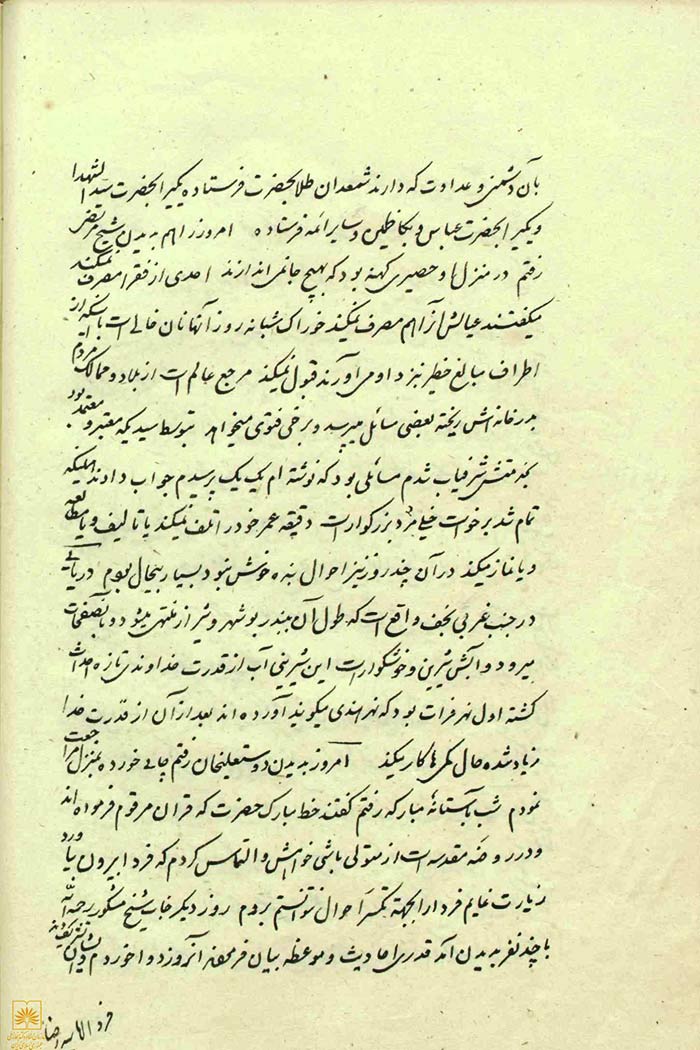 بآن دشمنی و عداوت که دارند شمعدان طلا بحضرت فرستاده یکی بحضرت سید الشهدا
و یکی بحضرت عباس و بکاظمین و سایر ائمه فرستاده امروز را هم بدیدن شیخ مرتضی
رفتم در منزل او حصیری کهنه بود که بهیچ جا نمی اندازند احدی از فقرا مصرف نمیکند
میگفتند عیالش آنرا هم مصرف نمیکند خوراک شبانه روز آنها نان خالی است با اینکه از
اطراف مبالغ خطیر نزد او می آورند قبول نمیکند مرجع عالم است از بلاد و ممالک مردم
بدر خانه اش ریخته بعضی مسائل میپرسد و برخی فتوی میخواهد بتوسط سیدی که معتبر و معتمد بود
بخدمتش شرفیاب شدم مسائلی بود که نوشته ام یک یک پرسیدم جواب دادند همینکه
تمام شد برخواست خیلی مرد بزرگوار است دقیقه عمر خود را تلف نمیکند یا تالیف و یا مطالعه
و یا نماز میکند در آن چند روز نیز احوال بنده خوش نبود بسیار بیحال بودم دریائی
در جنب غربی نجف واقع است که طول آن ببندر بوشهر و شیراز منتهی میشود و بآنصفحات
میرود و آبش شیرین و خوشگوار است این شیرینی آب از قدرت خداوندی تازه احداث
گشته اول نهر فرات بود که نهر هندی میگویند آورده اند بعد از آن از قدرت خدا
زیاد شده حال کمی ها کار میکند امروز بدیدن دوستعلیخان رفتم چای خورده بمنزل مراجعت
نمودم شب بآستانه مبارکه رفتم گفتند خط مبارک حضرت که قران مرقوم فرموده اند
و در روضه مقدسه است از متولی باشی خواهش و التماس کردم که فردا بیرون بیاورد
زیارت نمایم فردا را بجهة تکسر احوال نتوانستم بروم روز دیگر جناب شیخ مشکور رحمه الله
با چند نفر بدیدن آمد قدری احادیث و موعظه بیان فرمودند آنروز دوا خوردم
فردا